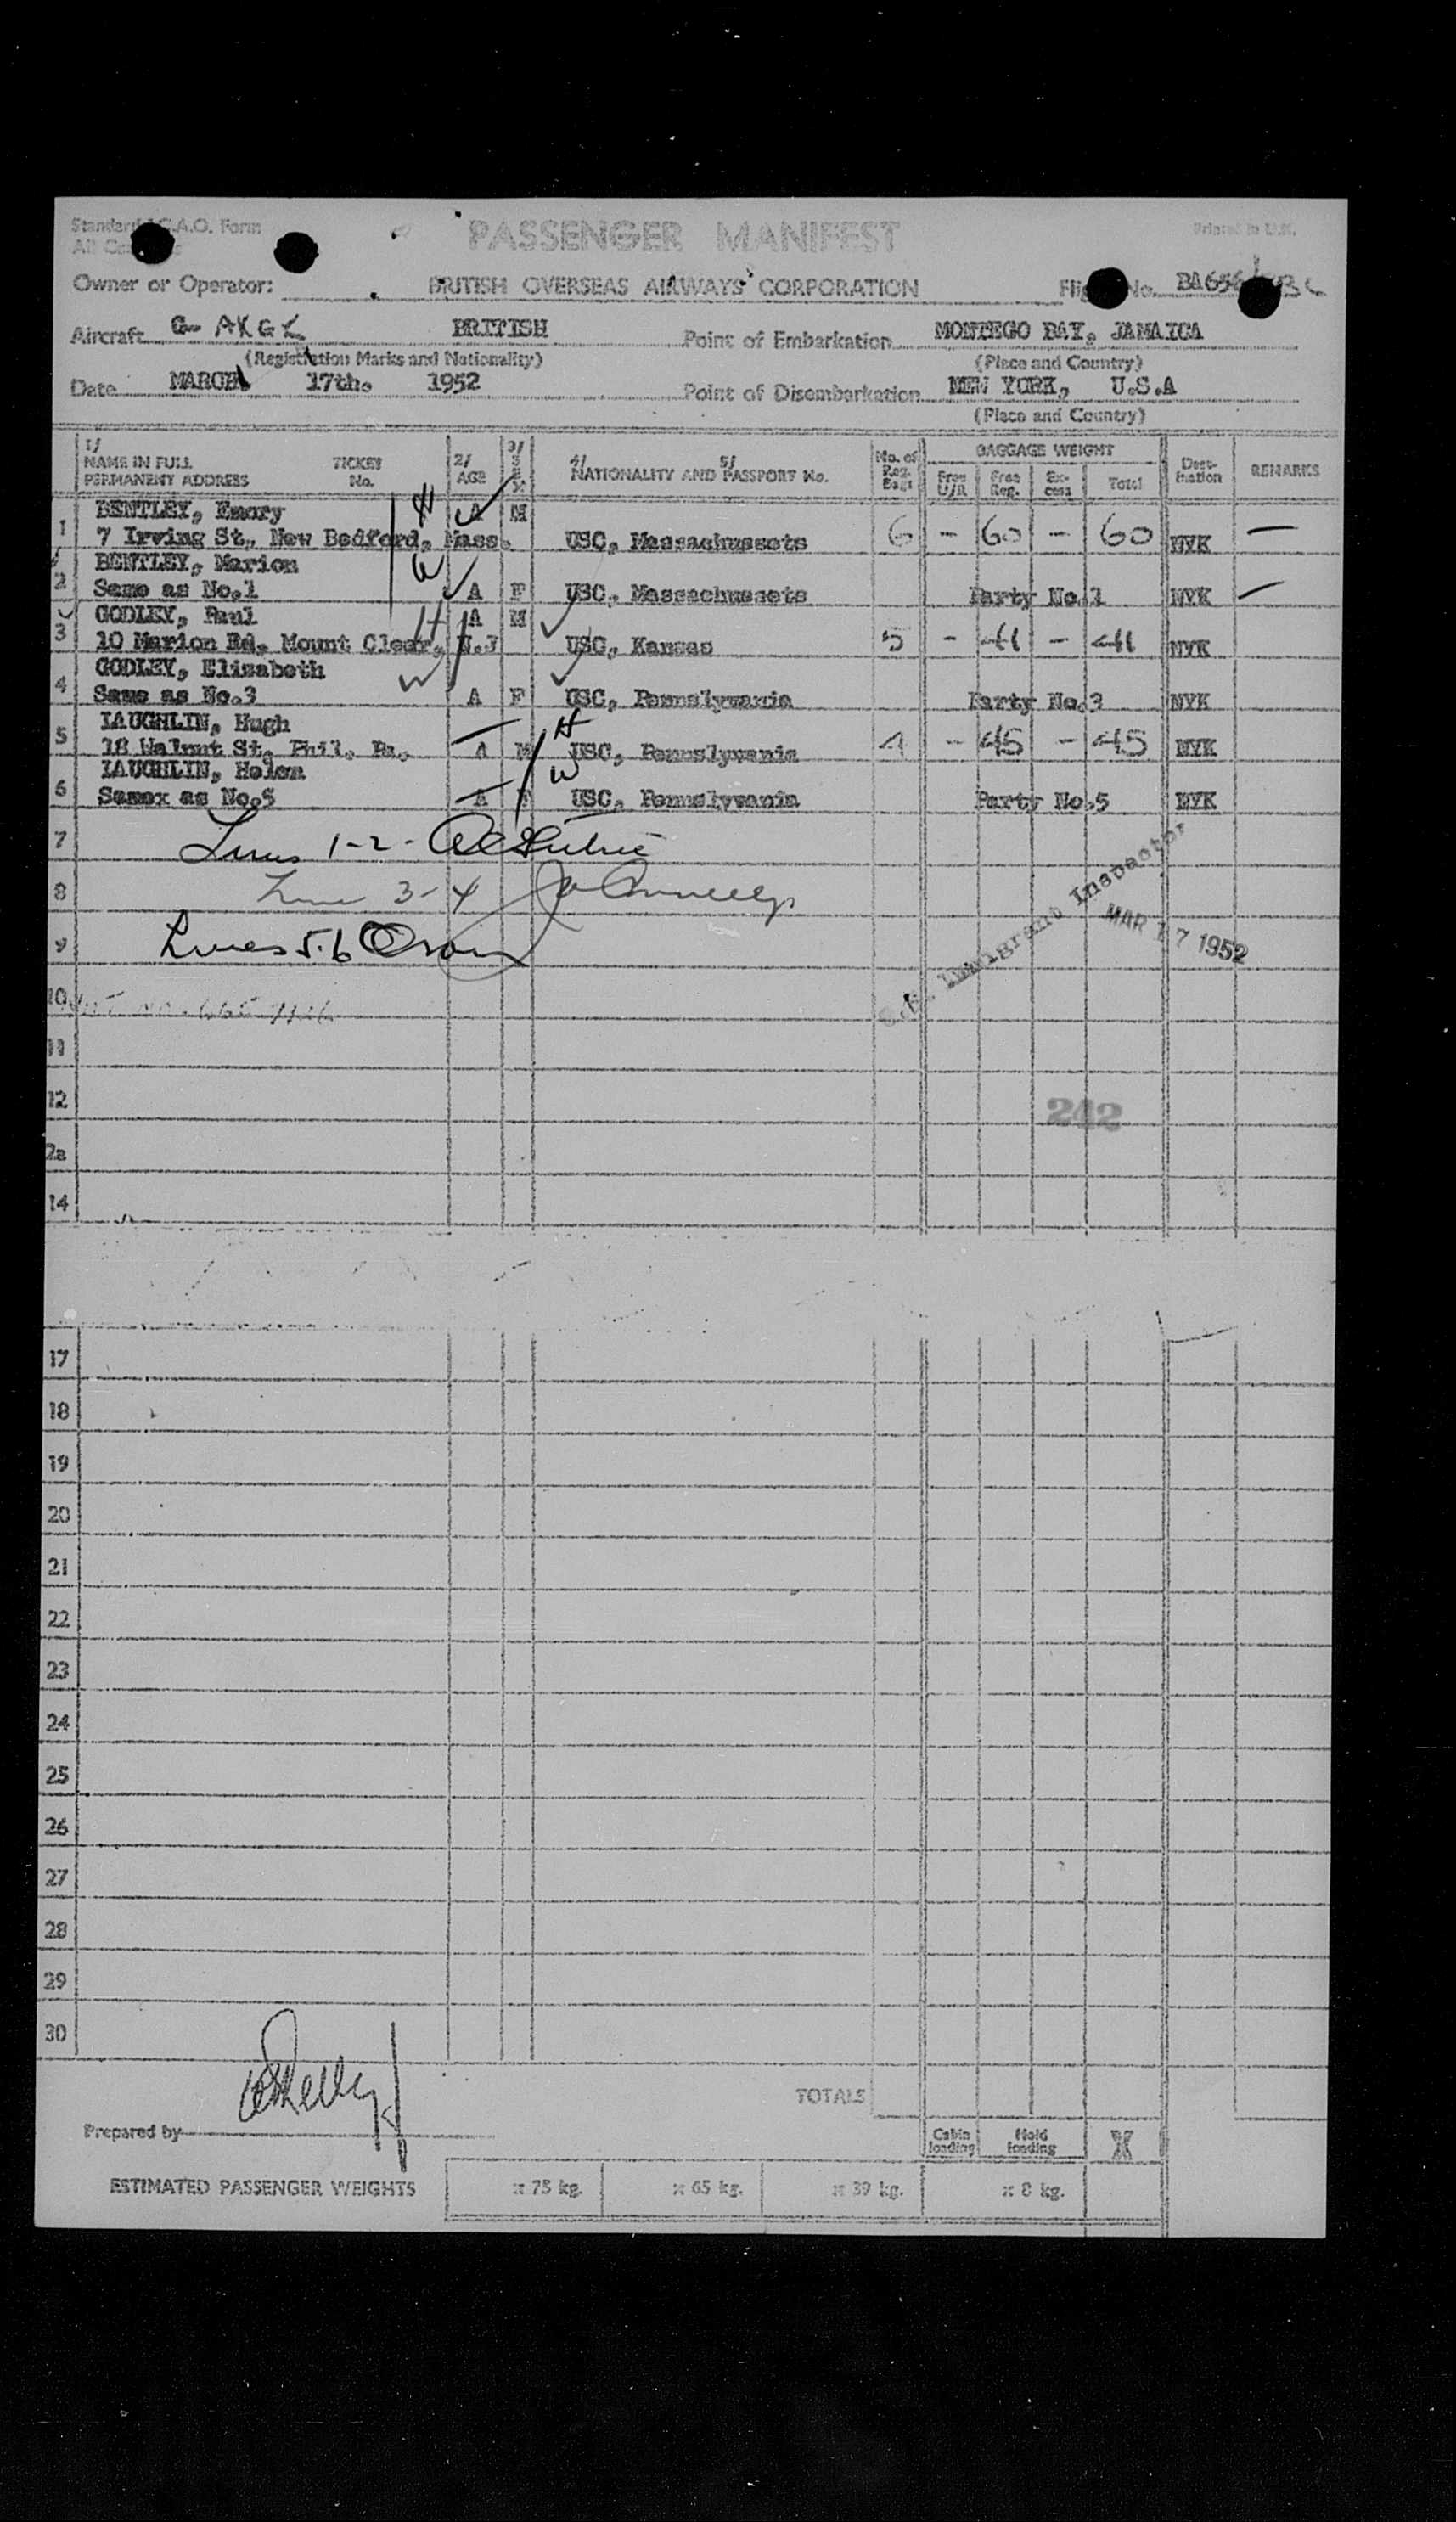 Standard I.C.A.O. Form
PASSENGER MANIFEST
Printed in U.K.
Owner or Operator: BRITISH OVERSEAS AIRWAYS CORPORATION
Flight No. BA656
Aircraft G- AKGL BRITISH
Point of Embarkation MONTEGO BAY, JAMAICA
(Registration Marks and Nationality)
(Place and Country)
Date MARCH 17th. 1952
Point of Disembarkation NEW YORK, U.S.A
(Place and Country)
1/ NAME IN FULL PERMANENT ADDRESS TICKET No. 2/ AGE 3/ SEX 4/ 5/ NATIONALITY AND PASSPORT No. No. of Reg. Bags BAGGAGE WEIGHT Free U/R Free Reg. Ex-cess Total Dest-ination REMARKS
BENTLEY, Emory H A M
1 7 Irving St., New Bedford, Mass. USC, Massachussets 6 - 60 - 60 NYK —
BENTLEY, Marion W
2 Same as No.1 A F USC, Massachussets Party No.1 NYK —
GODLEY, Paul H A M
3 10 Marion Rd. Mount Clear, N.J USC, Kansas 5 - 41 - 41 NYK
GODLEY, Elizabeth W
4 Same as No.3 A F USC, Pennslyvania Party No.3 NYK
LAUGHLIN, Hugh H
5 18 Walnut St. Phil. Pa. A M USC, Pennslyvania 1 - 45 - 45 NYK
LAUGHLIN, Helen W
6 Samex as No.5 A F USC, Pennslyvania Party No.5 NYK
7 Lines 1-2-
8 Line 3-4
9 Lines 5-6
Immigrant Inspector
MAR 17 1952
10
11
12
242
2a
14
17
18
19
20
21
22
23
24
25
26
27
28
29
30
TOTALS
Prepared by
Cabin loading Hold loading X
ESTIMATED PASSENGER WEIGHTS x 75 kg. x 65 kg. x 39 kg. x 8 kg.